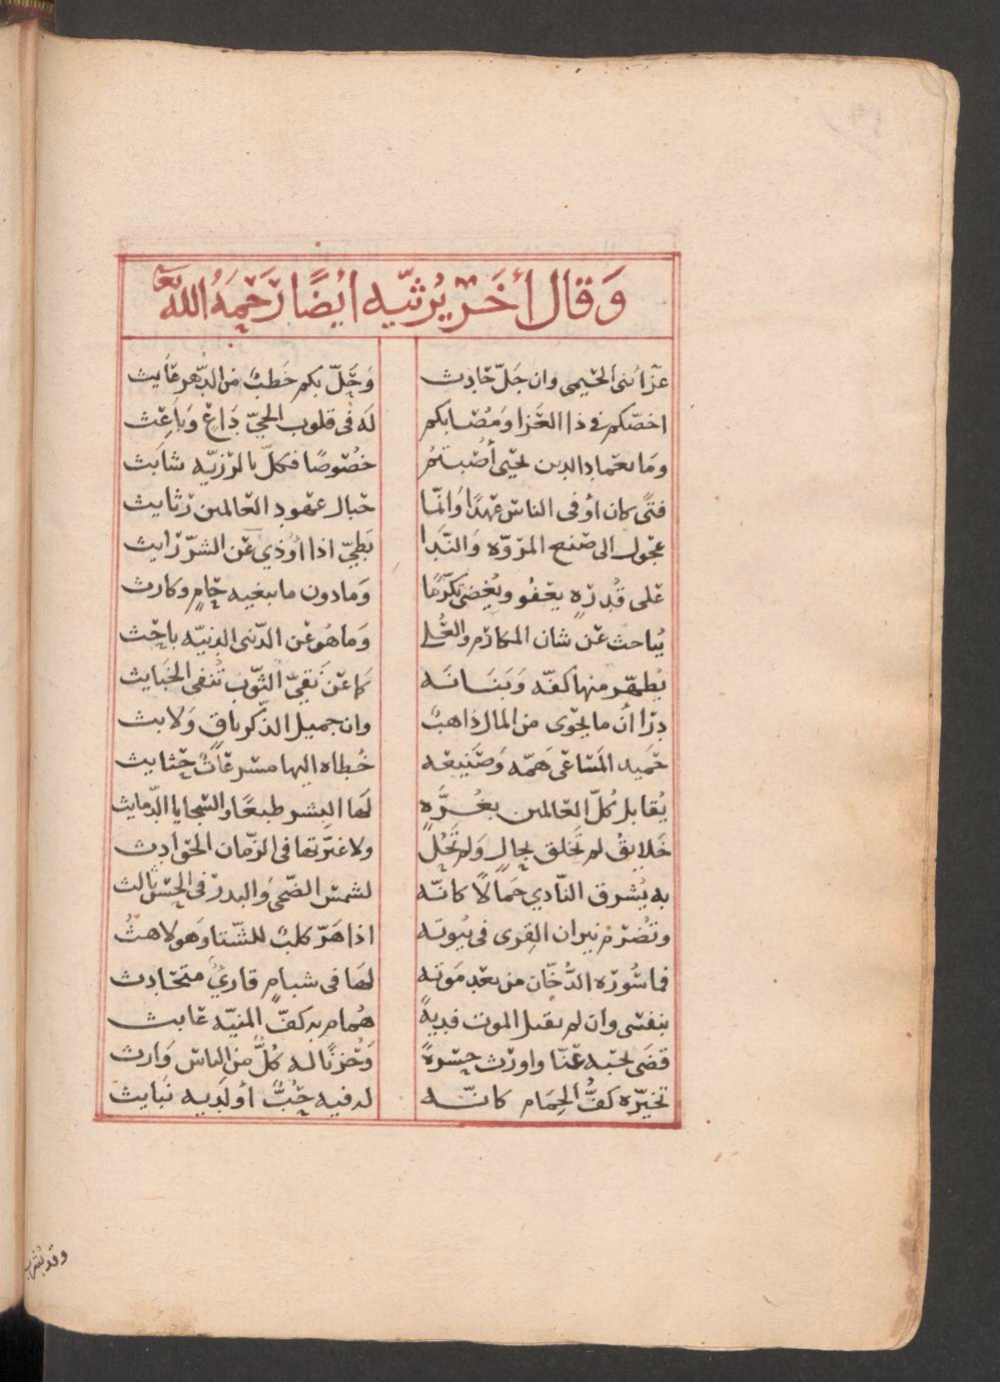 وَقَال أخَر يُرثيّه ايْضًا رَحِمَهُ اللّٰه تع
عزّا بنى الخيمى وان جَلّ حَادِث وَحَلّ بكم خَطبٌ من الدّهر عَايث
اخصّكم فى ذا العَزا وَمُصَابكم لَه فى قلوب الحىّ دَاعٍ وَبَاعِث
وَما بعماد الدين يحيَى أُصْبتمُ خصُوصًا فكلّ بالمرزيّه شابَث
فتًى كان أوفى الناس عَهدًا وَانّما حبال عهود العَالمين رثايث
عجول الى صَنع المروّه وَالنّدا بَطىّ اذا أُوذي عَن الشرّ رَايث
عَلى قُدرَهٍ يعفُو ويُغضى تكرّمًا وَمادون ما يبغيه حَامٍ وكارث
يُباحث عَن شان المكارم والعُلى وَما هُو عَن الدّنى الدنيّه باحِث
يُطهّر منها كفّه وَبَنَانَه كما عَن نَقيّ الثوّب تُنفى الخبَايث
درَا أن ما يحوَى من المال ذاهبٌ وان جميل الذّكر باقٍ وَلابث
حَميد المَسَاعى هَمّه وَصَنيعه خُطاه اليها مسْرعَاتٌ حثايث
يُقابل كُلّ العَالمين بغُرَّهٍ لهَا البشر طبعًا والسَّجايا الدّمايث
خَلايقُ لم تَخلق بحالٍ وَلم تَحُل ولا غيّرتها فى الزّمان الحَوادث
به يُشرق النّادي جَمالًا كانّه لشمس الضّحى وَالبدر فى الحسْن ثالث
وتضْرَم نيران القِرى فى بُيوته اذا هَرّ كلبٌ للشّتا وَهو لاهثُ
فما سُورَه الدُّخّان من بعْد مَوته لهَا فى شبامٍ قارئٌ متحَادث
بنفسى وَان لم يقبل الموت فديةً هُمام به كفّ المنيّه عَابث
قضَى نحبَه عنّا واورَث حسْرهً وَحُزنًا له كُلٌّ من الناس وَارث
تخيّره كفُّ الحِمَام كانّه له فيه حُبٌّ أو لَديه نَبايث